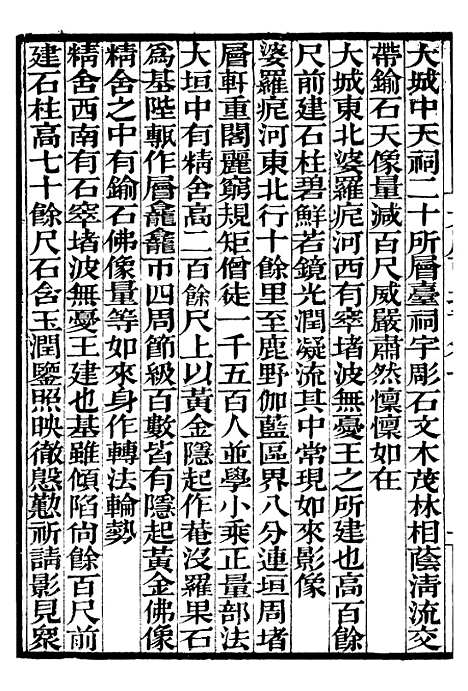 大城中天祠二十所層臺祠宇彫石文木茂林相蔭清流交
帶鍮石天像量減百尺威嚴肅然懍懍如在
大城東北婆羅痆河西有窣堵波無憂王之所建也高百餘
尺前建石柱碧鮮若鏡光潤凝流其中常現如來影像
婆羅痆河東北行十餘里至鹿野伽藍區界八分連垣周堵
層軒重閣麗窮規矩僧徒一千五百人並學小乘正量部法
大垣中有精舍高二百餘尺上以黃金隱起作菴沒羅果石
爲基陛甎作層龕龕帀四周節級百數皆有隱起黃金佛像
精舍之中有鍮石佛像量等如來身作轉法輪勢
精舍西南有石窣堵波無憂王建也基雖傾陷尚餘百尺前
建石柱高七十餘尺石含玉潤鑒照映徹慇懃祈請影見衆